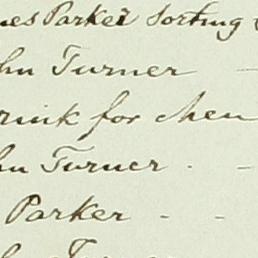 nes Parker Sorting
hn Turner -
rink for Men
hn Turner - -
Parker - -